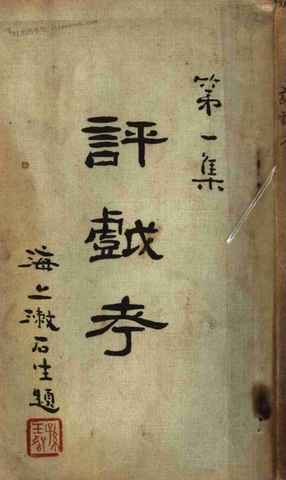 第一集
評戲考
海上漱石生題